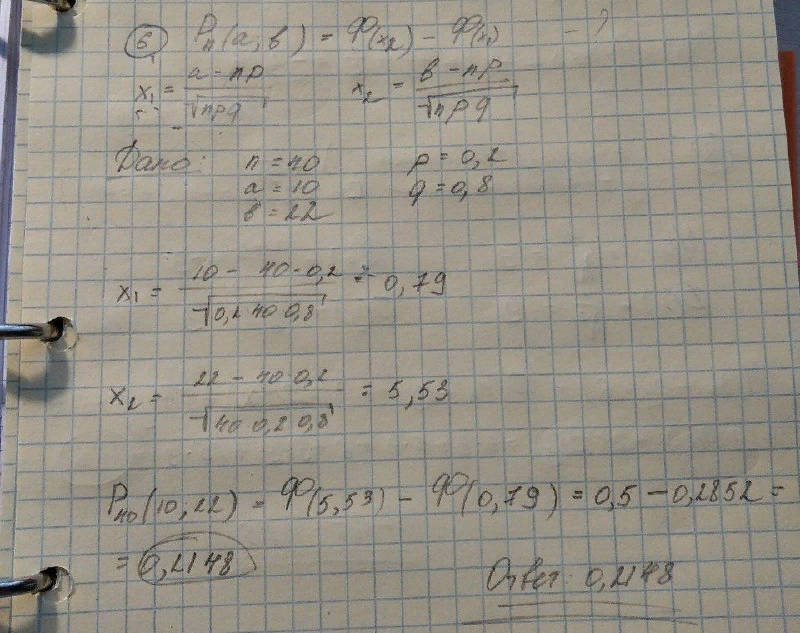 6 Pₙ(a, b) = Φ(x₂) – Φ(x₁) – ?
x₁ = (a – np) / √npq x₂ = (b – np) / √npq
Дано: n = 40 p = 0,2
a = 10 q = 0,8
b = 22
x₁ = (10 – 40·0,2) / √0,2 40 0,8 = 0,79
x₂ = (22 – 40·0,2) / √40 0,2 0,8 = 5,53
P₄₀(10, 22) = Φ(5,53) – Φ(0,79) = 0,5 – 0,2852 =
= 0,2148
Ответ: 0,2148